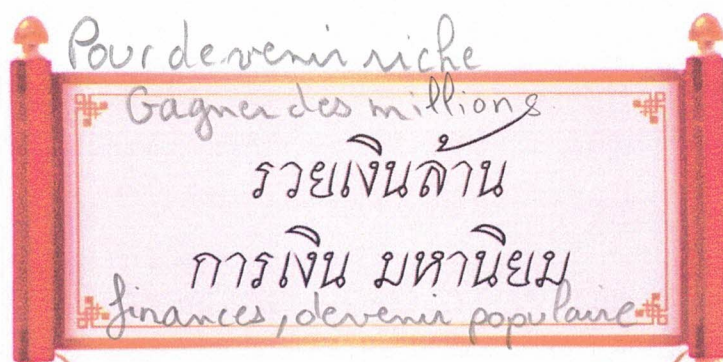 Pour devenir riche
Gagner des millions
รวยเงินล้าน
การเงิน มหานิยม
finances, devenir populaire